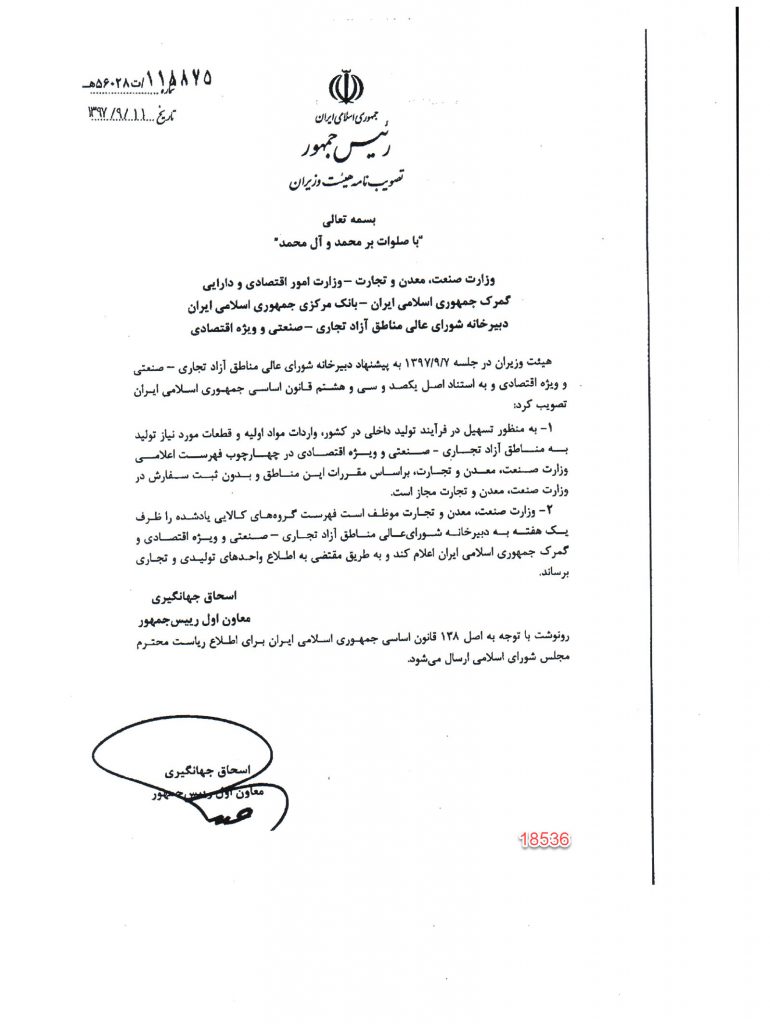 شماره ۱۱۵۸۷۵/ت۵۶۰۲۸هـ
تاریخ ۱۳۹۷/۹/۱۱
جمهوری اسلامی ایران
رئیس جمهور
تصویب نامه هیئت وزیران
بسمه تعالی
"با صلوات بر محمد و آل محمد"
وزارت صنعت، معدن و تجارت – وزارت امور اقتصادی و دارایی
گمرک جمهوری اسلامی ایران – بانک مرکزی جمهوری اسلامی ایران
دبیرخانه شورای عالی مناطق آزاد تجاری – صنعتی و ویژه اقتصادی
هیئت وزیران در جلسه ۱۳۹۷/۹/۷ به پیشنهاد دبیرخانه شورای عالی مناطق آزاد تجاری – صنعتی
و ویژه اقتصادی و به استناد اصل یکصد و سی و هشتم قانون اساسی جمهوری اسلامی ایران
تصویب کرد:
۱- به منظور تسهیل در فرآیند تولید داخلی در کشور، واردات مواد اولیه و قطعات مورد نیاز تولید
به مناطق آزاد تجاری - صنعتی و ویژه اقتصادی در چهارچوب فهرست اعلامی
وزارت صنعت، معدن و تجارت، براساس مقررات این مناطق و بدون ثبت سفارش در
وزارت صنعت، معدن و تجارت مجاز است.
۲- وزارت صنعت، معدن و تجارت موظف است فهرست گروه‌های کالایی یادشده را ظرف
یک هفته به دبیرخانه شورای‌عالی مناطق آزاد تجاری – صنعتی و ویژه اقتصادی و
گمرک جمهوری اسلامی ایران اعلام کند و به طریق مقتضی به اطلاع واحدهای تولیدی و تجاری
برساند.
اسحاق جهانگیری
معاون اول رییس‌جمهور
رونوشت با توجه به اصل ۱۳۸ قانون اساسی جمهوری اسلامی ایران برای اطلاع ریاست محترم
مجلس شورای اسلامی ارسال می‌شود.
اسحاق جهانگیری
معاون اول رییس‌جمهور
18536